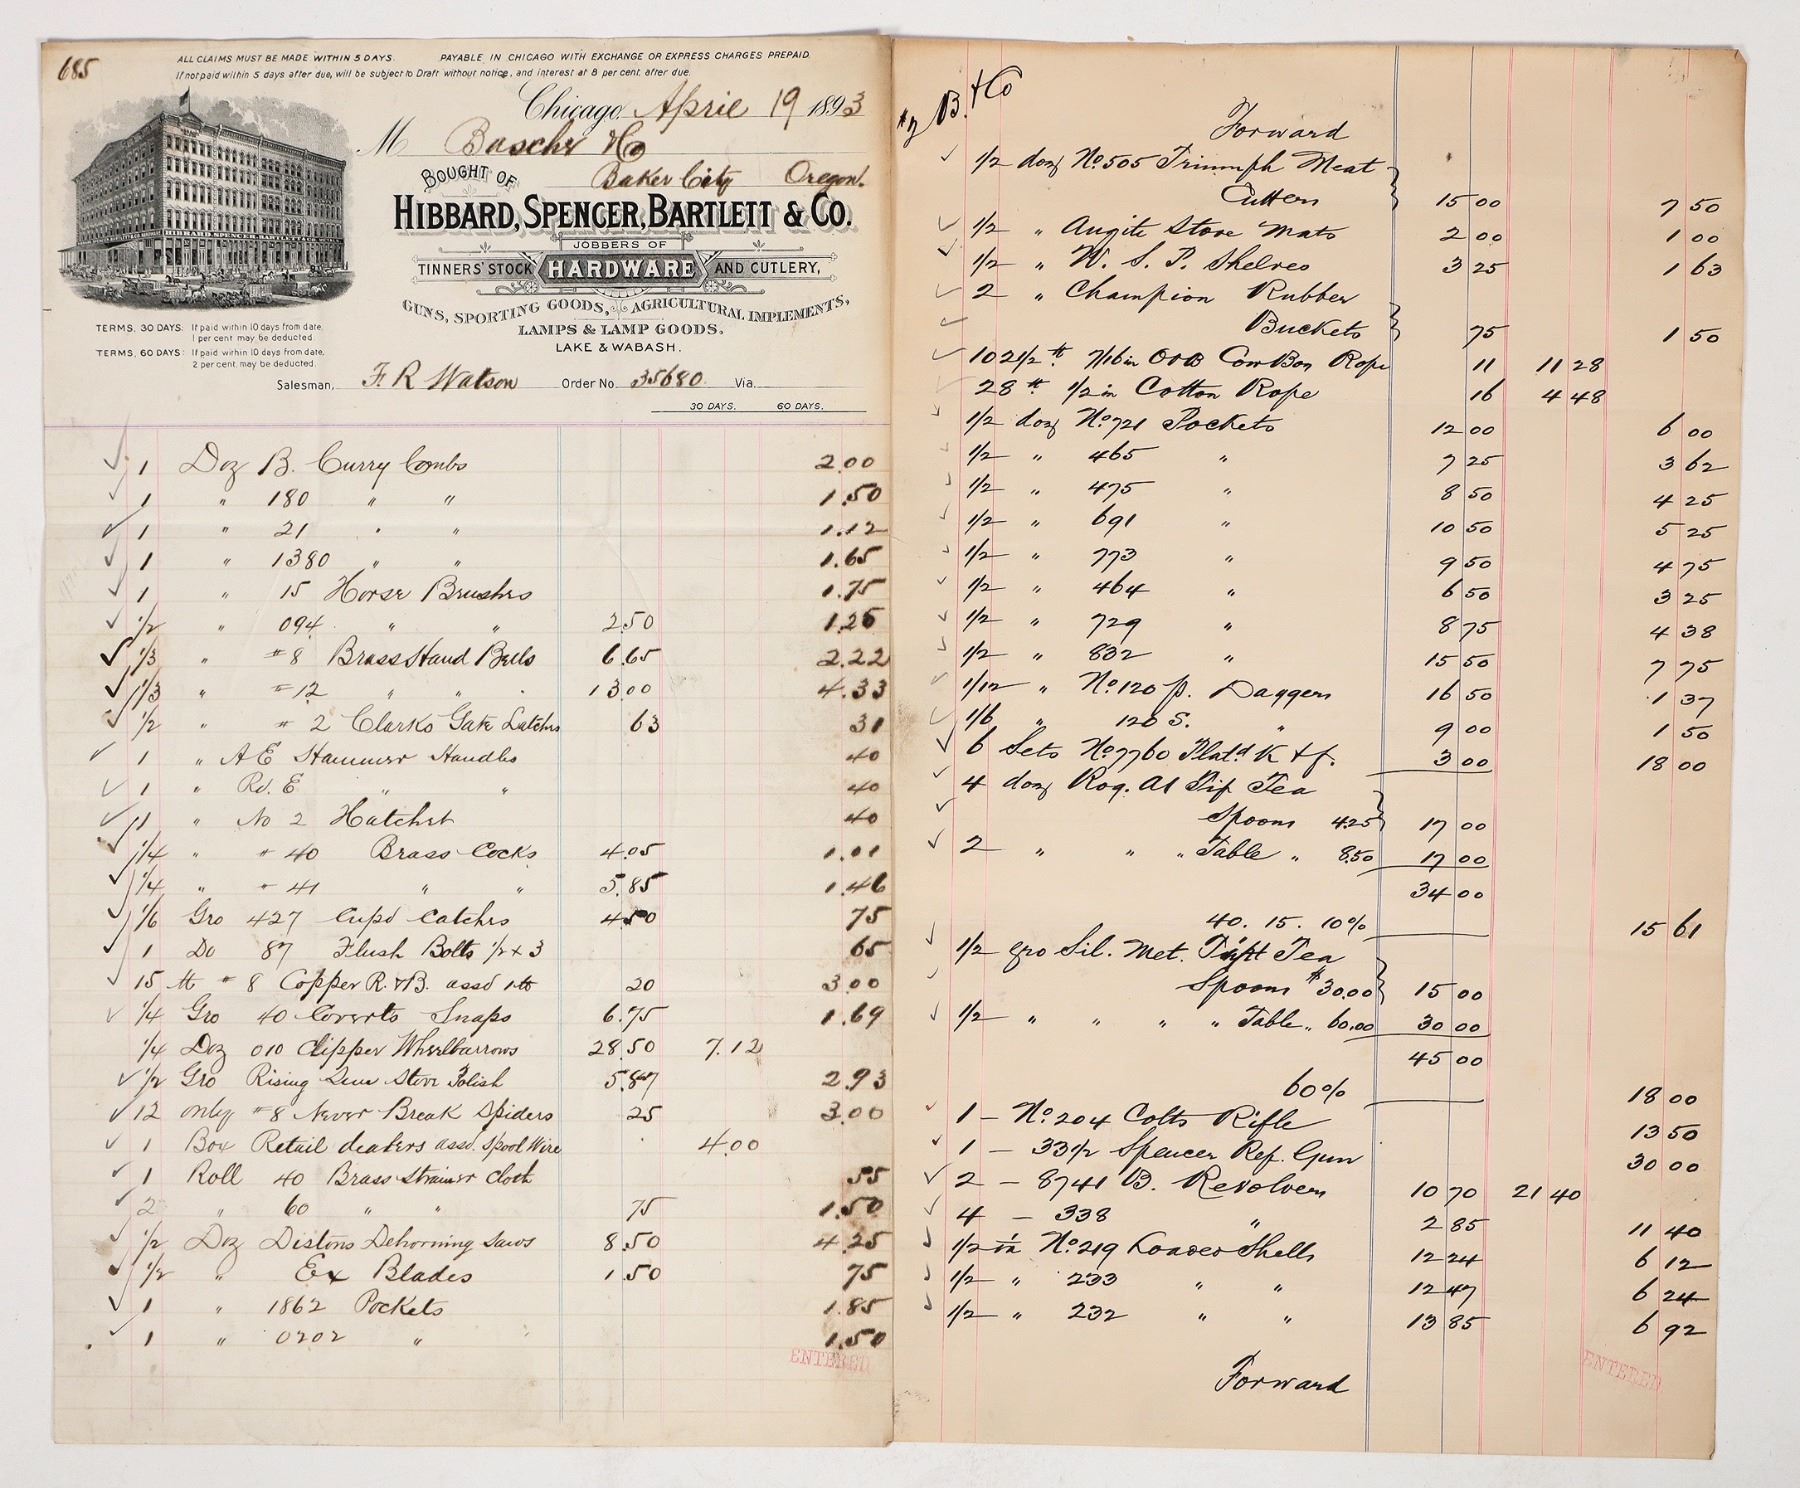 685
ALL CLAIMS MUST BE MADE WITHIN 5 DAYS. PAYABLE IN CHICAGO WITH EXCHANGE OR EXPRESS CHARGES PREPAID.
If not paid within 5 days after due, will be subject to Draft without notice, and interest at 8 per cent. after due.
Chicago, April 19 1893
M Basche & Co
BOUGHT OF Baker City Oregon.
HIBBARD, SPENCER, BARTLETT & CO.
JOBBERS OF
TINNERS' STOCK HARDWARE AND CUTLERY,
GUNS, SPORTING GOODS, AGRICULTURAL IMPLEMENTS,
LAMPS & LAMP GOODS.
LAKE & WABASH.
HIBBARD SPENCER BARTLETT & CO.
TERMS, 30 DAYS: If paid within 10 days from date,
1 per cent may be deducted.
TERMS, 60 DAYS: If paid within 10 days from date,
2 per cent. may be deducted.
Salesman, F. R Watson Order No. 35680 Via
30 DAYS. 60 DAYS.
1 Doz B. Curry Combs 2.00
1 " 180 " " 1.50
1 " 21 " " 1.12
1 " 1380 " " 1.65
1 " 15 Horse Brushes 1.75
1/2 " 094 " " 2.50 1.25
1/3 " #8 Brass Hand Bells 6.65 2.22
1/3 " #12 " " " 13.00 4.33
1/2 " #2 Clarks Gate Latches 63 31
1 " A E Hammer Handles 40
1 " Rd. E " " 40
1 " No 2 Hatchet 40
1/4 " #40 Brass Cocks 4.05 1.01
1/4 " #41 " " 5.85 1.46
1/6 Gro 427 Cupd Catches 4.50 75
1 Do 87 Flush Bolts 1/2 x 3 65
15 lb #8 Copper R. & B. assd 20 3.00
1/4 Gro 40 Coverts Snaps 6.75 1.69
1/4 Doz 010 Clipper Wheelbarrows 28.50 7.12
1/2 Gro Rising Sun Stove Polish 5.87 2.93
12 only #8 Never Break Spiders 25 3.00
1 Box Retail dealers assd. Spool Wire 4.00
1 Roll 40 Brass Strainer Cloth 55
2 " 60 " " 75 1.50
1/2 Doz Distons Dehorning Saws 8.50 4.25
1/2 " Ex Blades 1.50 75
1 " 1862 Pockets 1.85
1 " 0202 " 1.50
ENTERED
#2 B. & Co
Forward
1/2 doz No. 505 Triumph Meat
Cutters 15 00 7 50
1/2 " Augite Stove Mats 2 00 1 00
1/2 " W. S. P. Shelves 3 25 1 63
2 " Champion Rubber
Buckets 75 1 50
102 1/2 lb 7/16 in Bon Rope 11 11 28
28 lb 1/2 in Cotton Rope 16 4 48
1/2 doz No. 721 Pockets 12 00 6 00
1/2 " 465 " 7 25 3 62
1/2 " 475 " 8 50 4 25
1/2 " 691 " 10 50 5 25
1/2 " 773 " 9 50 4 75
1/2 " 464 " 6 50 3 25
1/2 " 729 " 8 75 4 38
1/2 " 832 " 15 50 7 75
1/12 " No. 120 p. Daggers 16 50 1 37
1/6 " 120 S. " 9 00 1 50
6 Sets No. 7760 Platd K & f. 3 00 18 00
4 doz Rog. A1 Tip Tea
Spoons 4.25 17 00
2 " " " Table " 8.50 17 00
34 00
40. 15. 10% 15 61
1/2 gro Sil. Met. Tea
Spoons $30.00 15 00
1/2 " " " " Table " 60.00 30 00
45 00
60% 18 00
1 - No. 204 Colts Rifle 13 50
1 - 33 1/2 Spencer Rep. Gun 30 00
2 - 8741 B. Revolvers 10 70 21 40
4 - 338 " 2 85 11 40
1/2 m No. 219 Loaded Shells 12 24 6 12
1/2 " 233 " " 12 47 6 24
1/2 " 232 " " 13 85 6 92
Forward
ENTERED